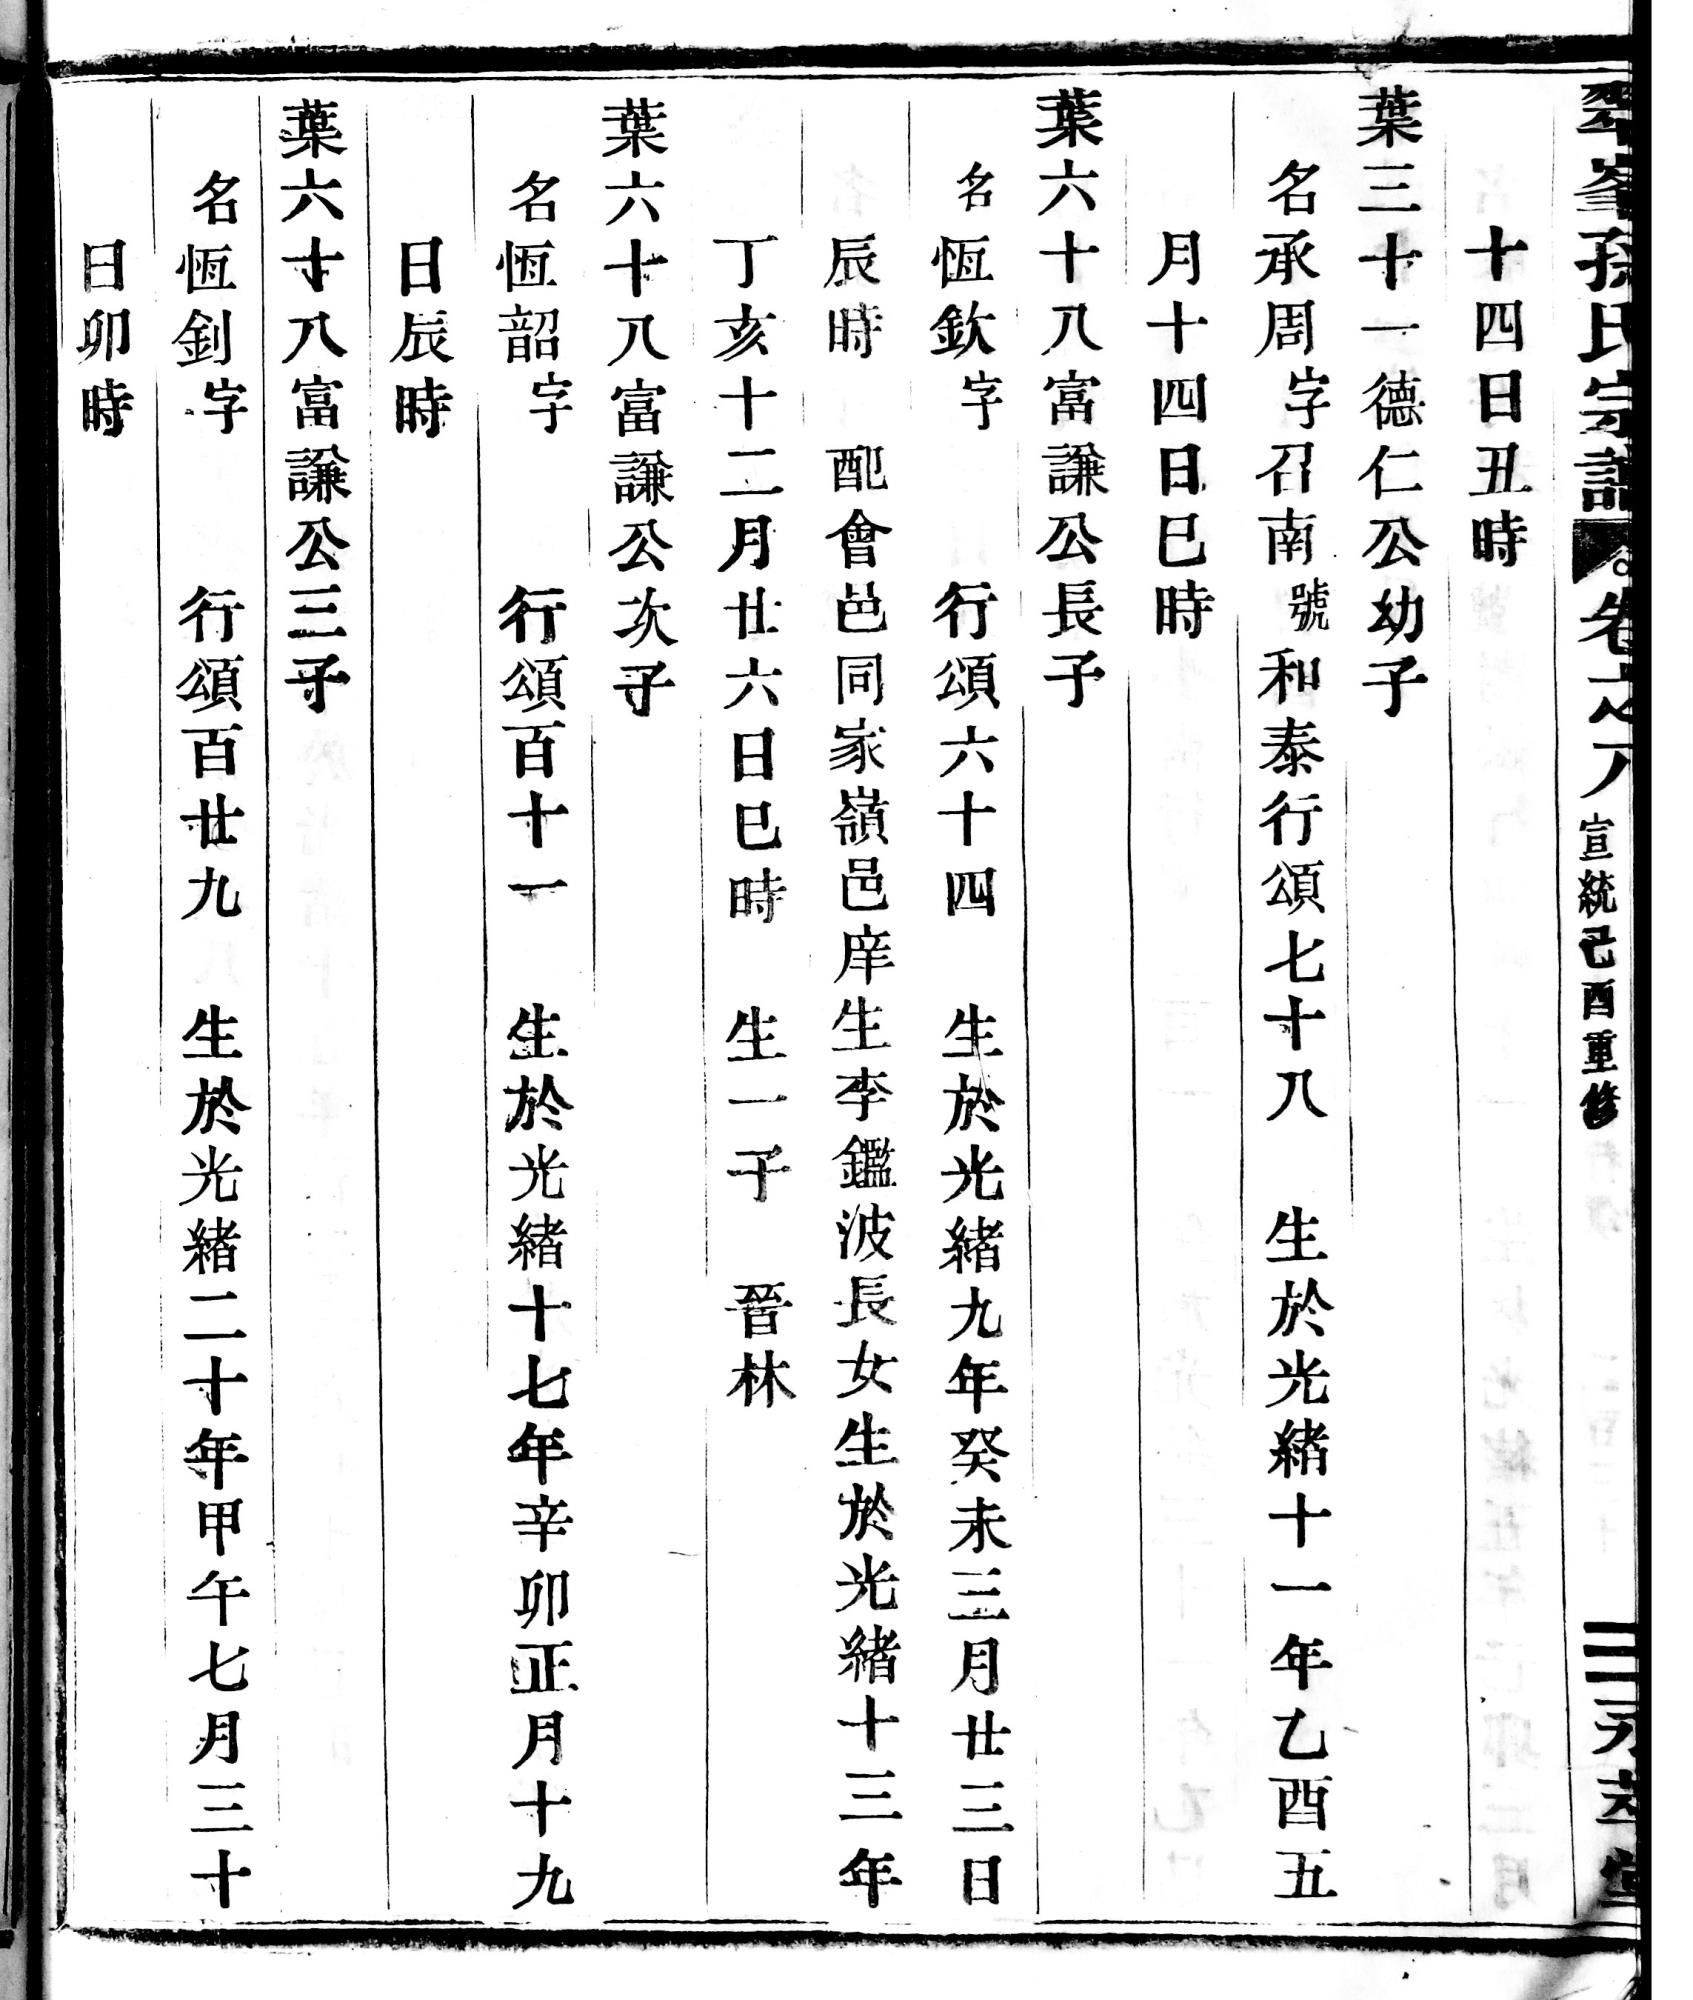 翠峯孫氏宗譜 卷之八 宣統己酉重修 二 永萃堂
十四日丑時
葉三十一德仁公幼子
名承周字召南號和泰行頌七十八 生於光緒十一年乙酉五
月十四日巳時
葉六十八富謙公長子
名恆欽字 行頌六十四 生於光緒九年癸未三月廿三日
辰時 配會邑同家嶺邑庠生李鑑波長女生於光緒十三年
丁亥十二月廿六日巳時 生一子 晉林
葉六十八富謙公次子
名恆韶字 行頌百十一 生於光緒十七年辛卯正月十九
日辰時
葉六十八富謙公三子
名恆釗字 行頌百廿九 生於光緒二十年甲午七月三十
日卯時